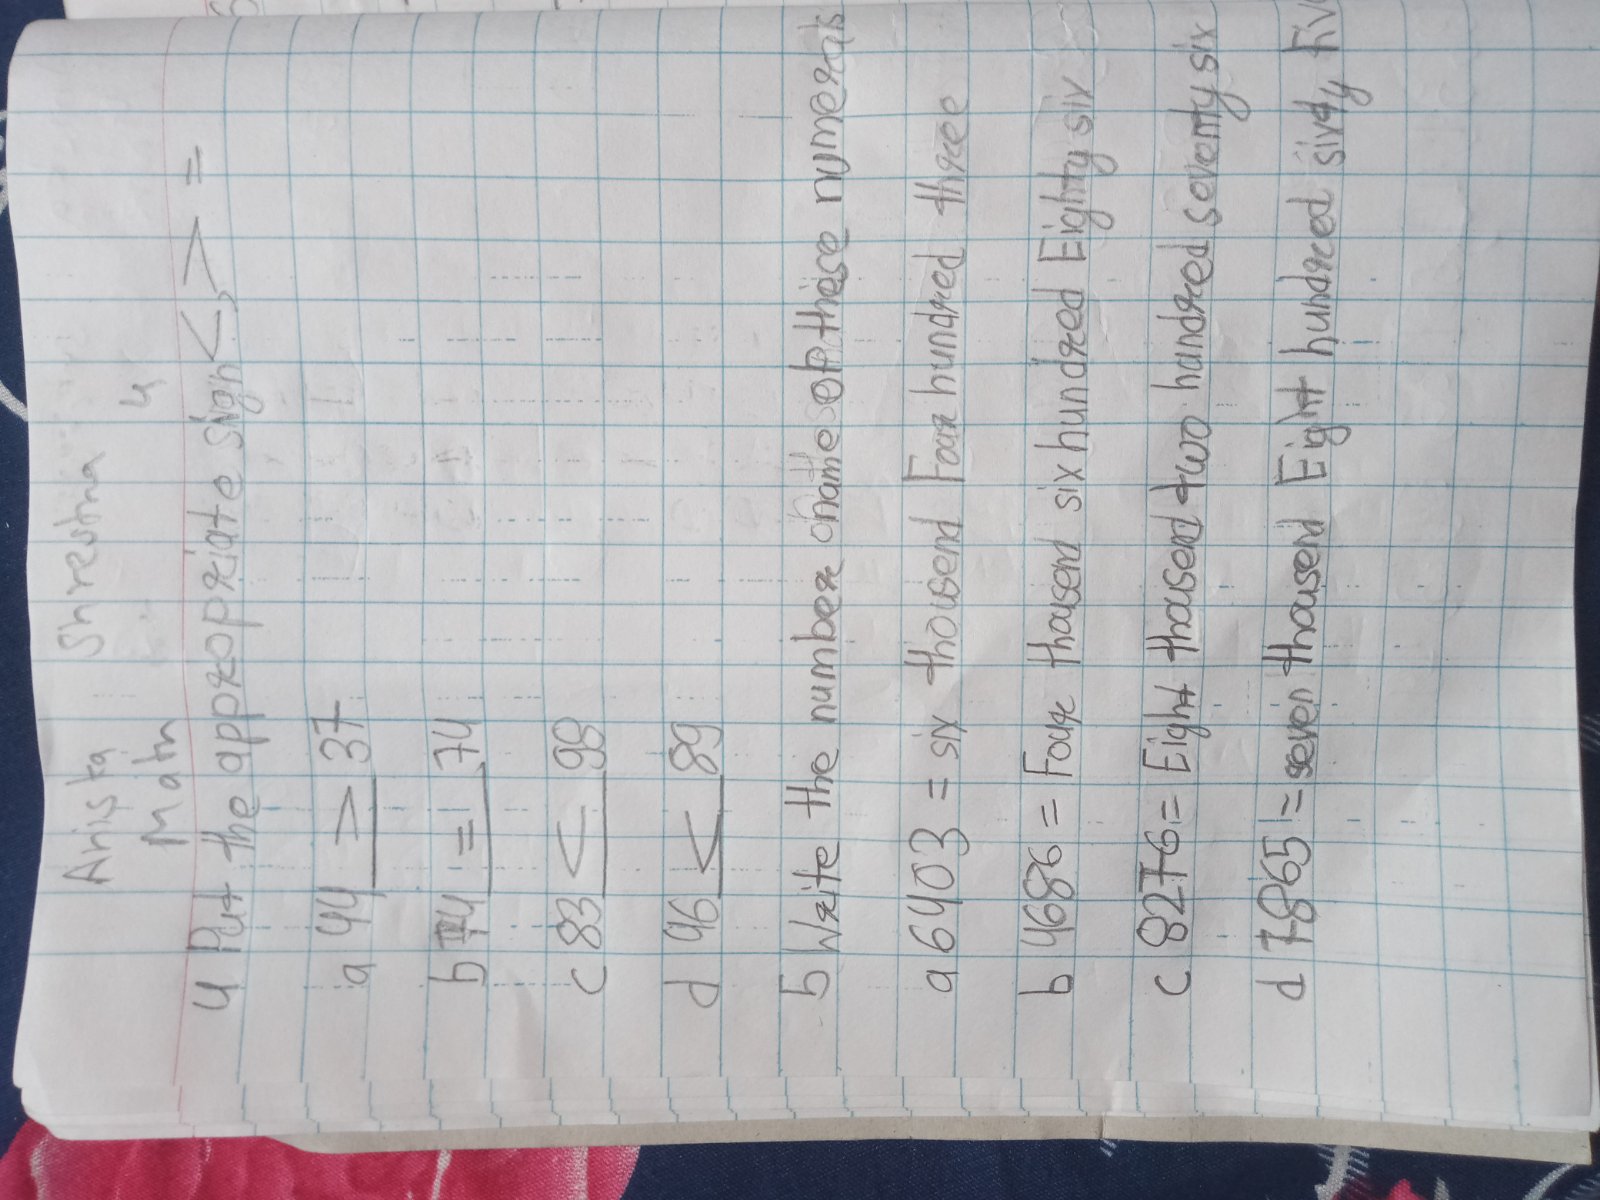 Aniska Shrestha
Math 4
4 Put the appropriate sign <, > =
a 44 > 37
b 74 = 74
c 83 < 98
d 46 < 89
5 Write the number name of these numerals
a 6403 = six thousend Four hundred three
b 4686 = Four thousend six hundred Eighty six
c 8276 = Eight thousend two handred seventy six
d 7865 = seven thousend Eight hundred sixty Five